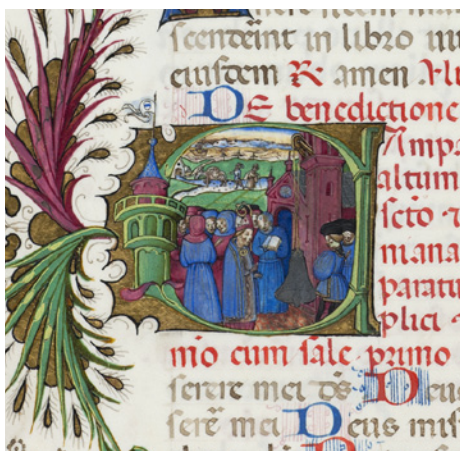 scendeint in libro
eiusdem R amen
De benedictione
Ampa
altum
scto
mana
paratu
plici
mo cum sale primo
serere mei ds Deus
sere mei Deus mis